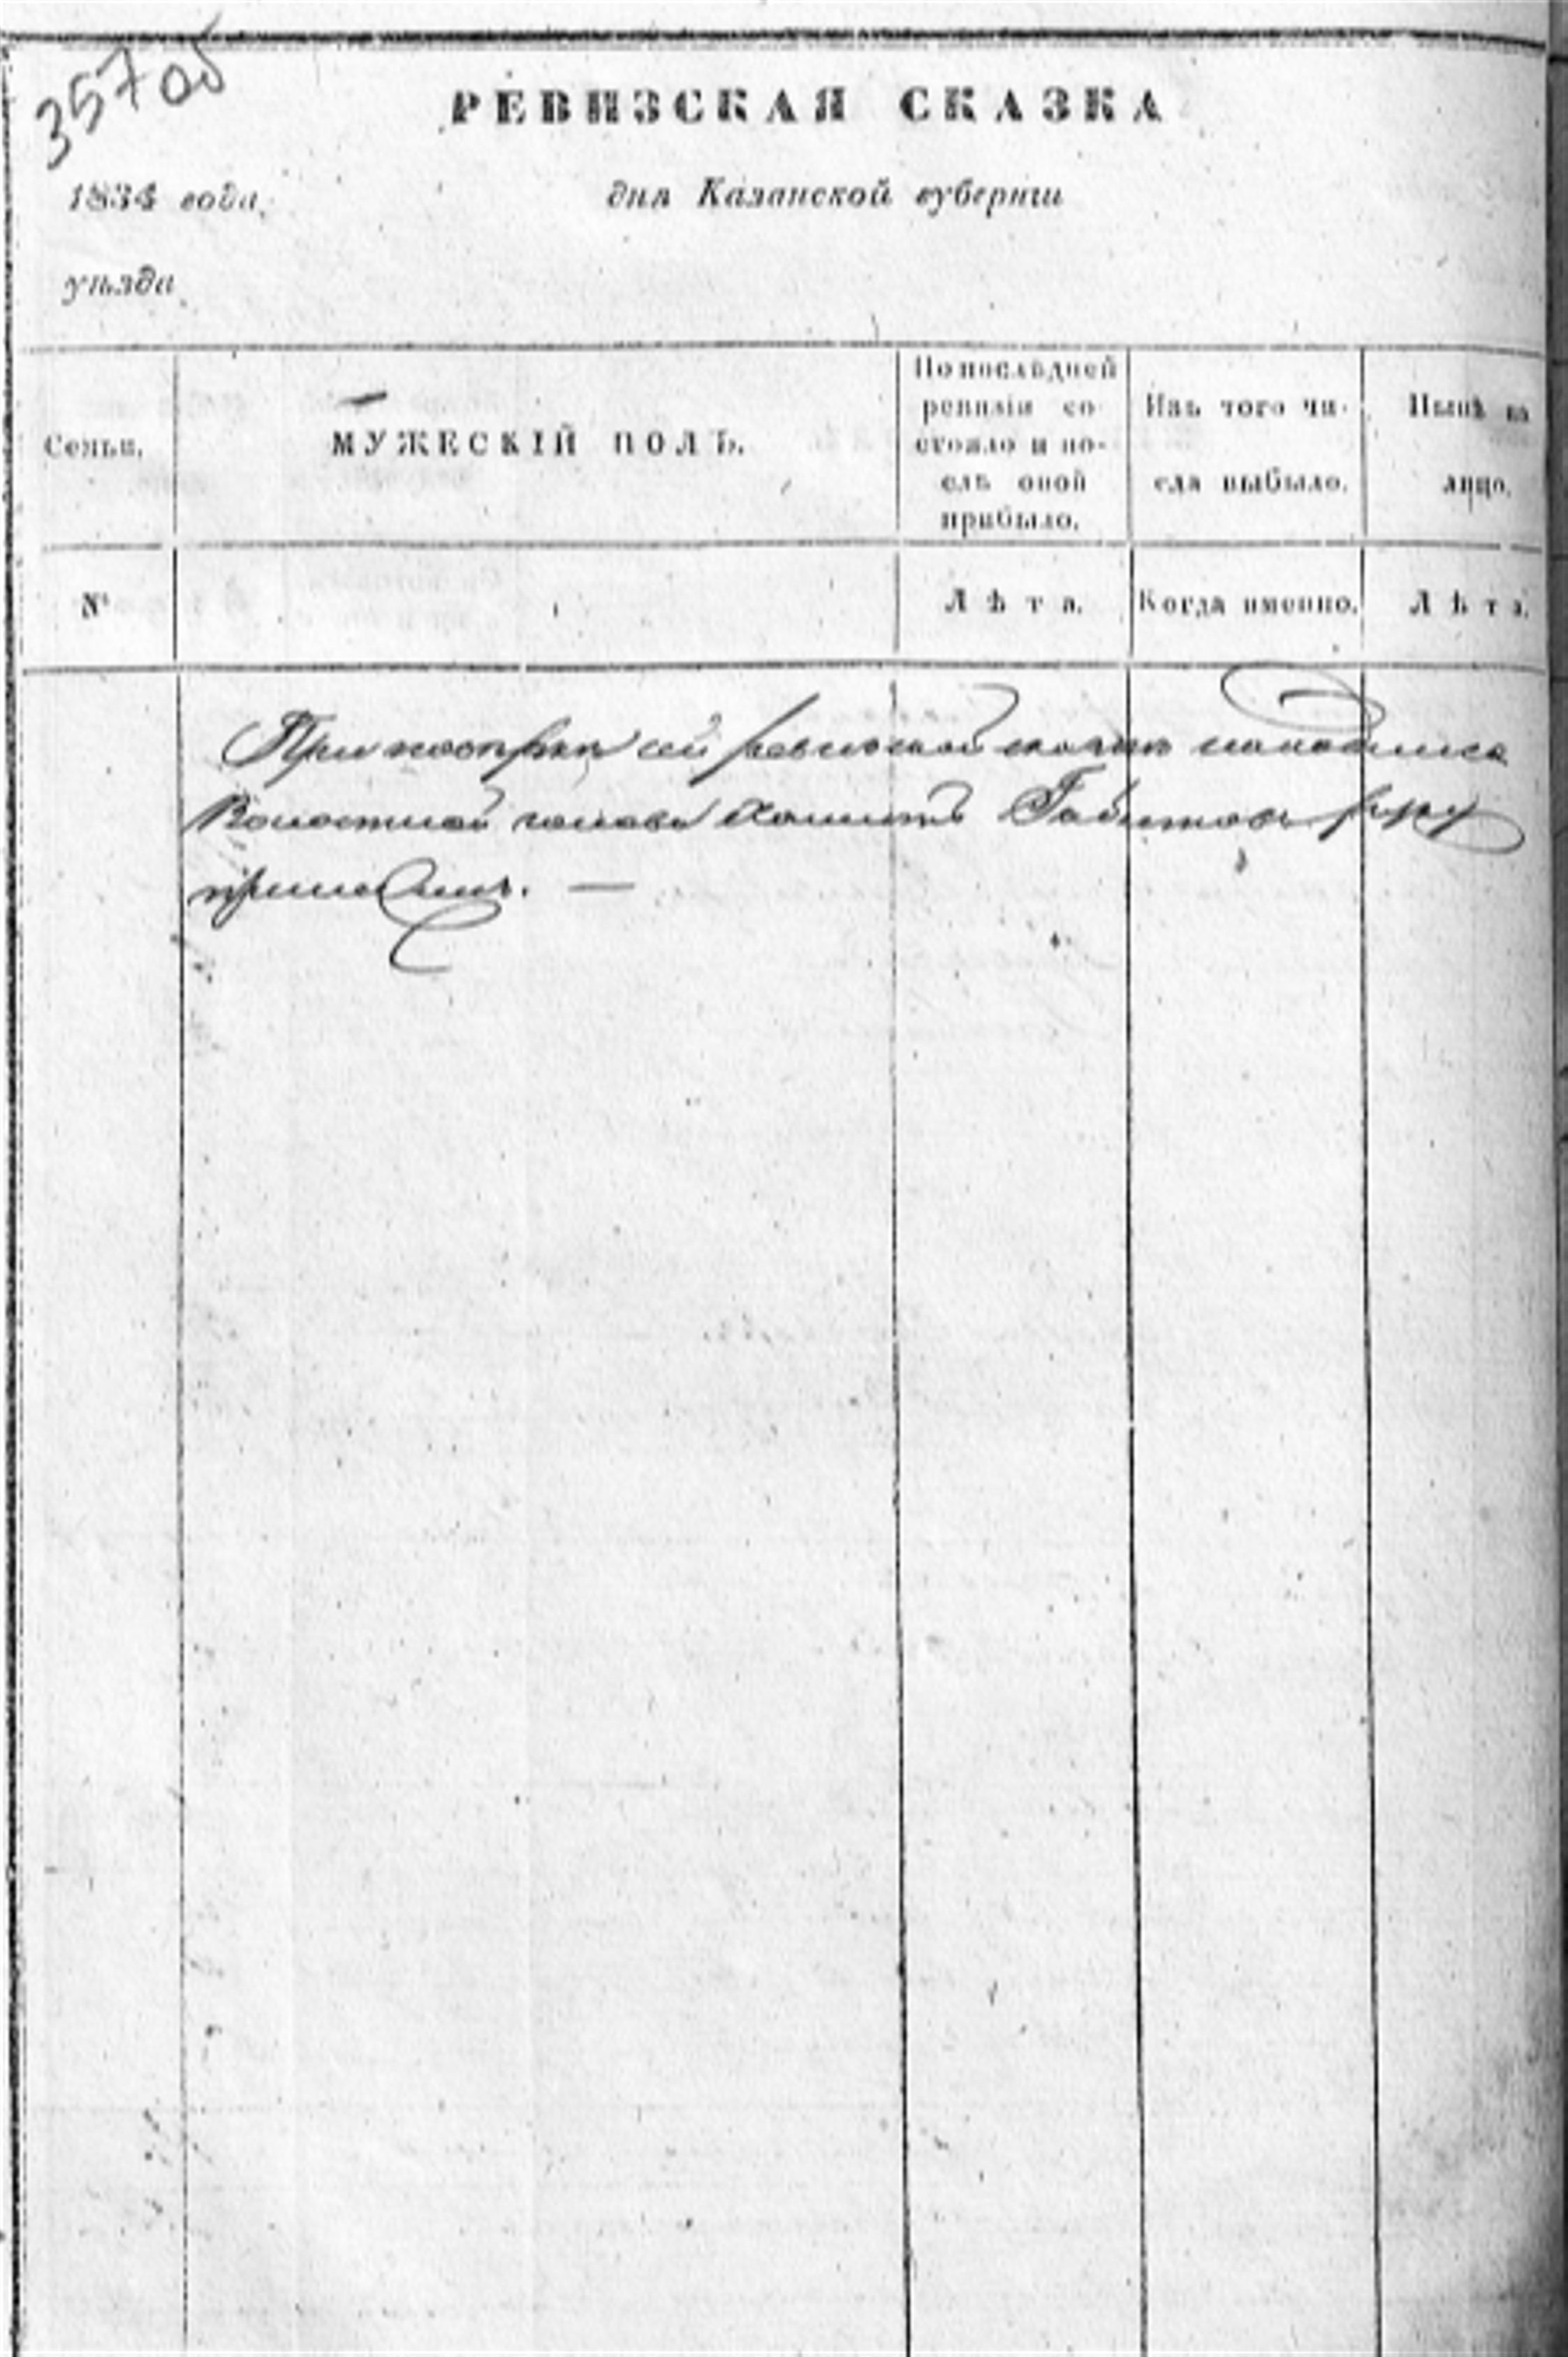 357 об
РЕВИЗСКАЯ СКАЗКА
1834 года,
дня Казанской губернiи
уѣзда
Семьи.
МУЖЕСКІЙ ПОЛЪ.
По послѣдней
ревизіи со-
стояло и по-
слѣ оной
прибыло.
Изъ того чи-
сла выбыло.
Нынѣ на
лицо.
№
Лѣта.
Когда именно.
Лѣта.
При поверки сей ревизской сказки находился
Волостной голова Хамитъ Габитовъ руку
приложилъ. —